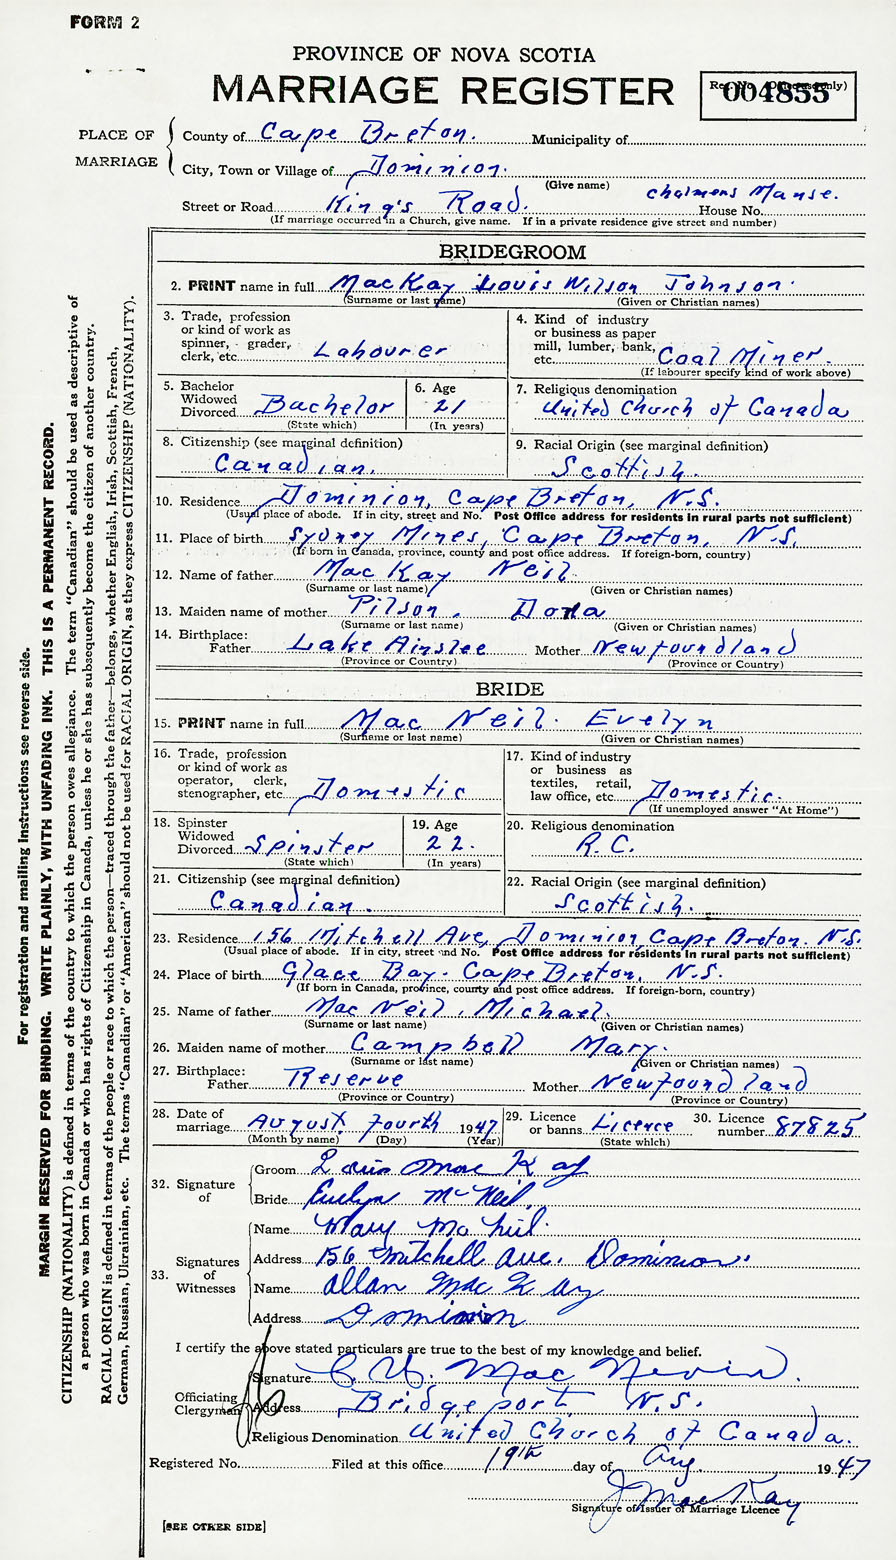 FORM 2
PROVINCE OF NOVA SCOTIA
MARRIAGE REGISTER
Reg. No. (Office use only)
004855
PLACE OF MARRIAGE
County of Cape Breton. Municipality of
City, Town or Village of Dominion.
(Give name)
Chalmers Manse.
Street or Road King's Road. House No.
(If marriage occurred in a Church, give name. If in a private residence give street and number)
BRIDEGROOM
2. PRINT name in full MacKay Louis Wilson Johnson
(Surname or last name) (Given or Christian names)
3. Trade, profession or kind of work as spinner, grader, clerk, etc. Labourer
4. Kind of industry or business as paper mill, lumber, bank, etc. Coal Miner.
(If labourer specify kind of work above)
5. Bachelor Widowed Divorced Bachelor
(State which)
6. Age 21
(In years)
7. Religious denomination
United Church of Canada
8. Citizenship (see marginal definition)
Canadian.
9. Racial Origin (see marginal definition)
Scottish.
10. Residence Dominion, Cape Breton, N.S.
(Usual place of abode. If in city, street and No. Post Office address for residents in rural parts not sufficient)
11. Place of birth Sydney Mines, Cape Breton, N.S.
(If born in Canada, province, county and post office address. If foreign-born, country)
12. Name of father Mac Kay Neil
(Surname or last name) (Given or Christian names)
13. Maiden name of mother Pilson. Dora
(Surname or last name) (Given or Christian names)
14. Birthplace: Father Lake Ainslee Mother Newfoundland
(Province or Country) (Province or Country)
BRIDE
15. PRINT name in full Mac Neil. Evelyn
(Surname or last name) (Given or Christian names)
16. Trade, profession or kind of work as operator, clerk, stenographer, etc. Domestic
17. Kind of industry or business as textiles, retail, law office, etc. Domestic.
(If unemployed answer "At Home")
18. Spinster Widowed Divorced Spinster
(State which)
19. Age 22.
(In years)
20. Religious denomination
R.C.
21. Citizenship (see marginal definition)
Canadian.
22. Racial Origin (see marginal definition)
Scottish.
23. Residence 156 Mitchell Ave, Dominion, Cape Breton. N.S.
(Usual place of abode. If in city, street and No. Post Office address for residents in rural parts not sufficient)
24. Place of birth Glace Bay. Cape Breton, N.S.
(If born in Canada, province, county and post office address. If foreign-born, country)
25. Name of father Mac Neil, Michael.
(Surname or last name) (Given or Christian names)
26. Maiden name of mother Campbell Mary.
(Surname or last name) (Given or Christian names)
27. Birthplace: Father Reserve Mother Newfoundland
(Province or Country) (Province or Country)
28. Date of marriage August Fourth 1947
(Month by name) (Day) (Year)
29. Licence or banns Licence
(State which)
30. Licence number 87825
32. Signature of
Groom Louis Mac Kay
Bride Evelyn McNeil.
33. Signatures of Witnesses
Name Mary McNeil.
Address 156 Mitchell Ave. Dominion.
Name Allan Mac Kay
Address Dominion
I certify the above stated particulars are true to the best of my knowledge and belief.
Officiating Clergyman
Signature Mac Nevin.
Address Bridgeport, N.S.
Religious Denomination United Church of Canada.
Registered No. Filed at this office 19th day of Aug. 1947
J MacKay
Signature of Issuer of Marriage Licence
[SEE OTHER SIDE]
For registration and mailing instructions see reverse side.
MARGIN RESERVED FOR BINDING. WRITE PLAINLY, WITH UNFADING INK. THIS IS A PERMANENT RECORD.
CITIZENSHIP (NATIONALITY) is defined in terms of the country to which the person owes allegiance. The term "Canadian" should be used as descriptive of
a person who was born in Canada or who has rights of Citizenship in Canada, unless he or she has subsequently become the citizen of another country.
RACIAL ORIGIN is defined in terms of the people or race to which the person—traced through the father—belongs, whether English, Irish, Scottish, French,
German, Russian, Ukrainian, etc. The terms "Canadian" or "American" should not be used for RACIAL ORIGIN, as they express CITIZENSHIP (NATIONALITY).